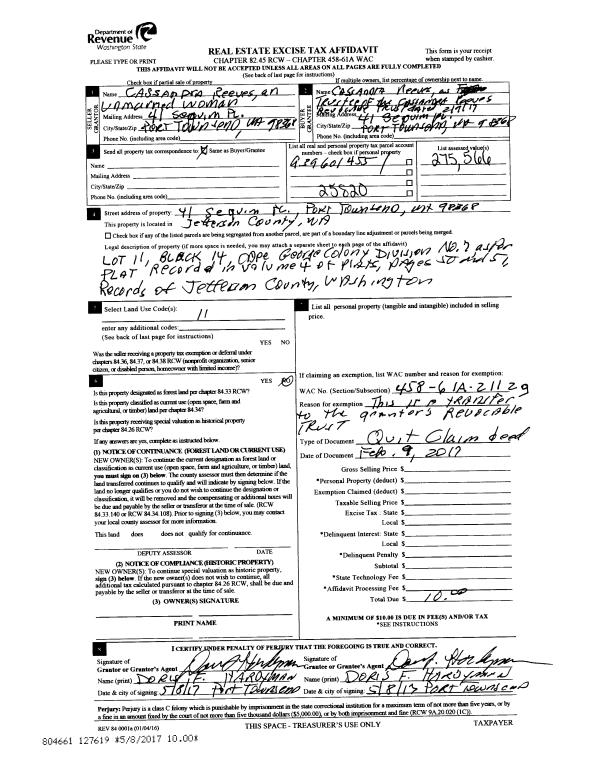 Department of
Revenue
Washington State
REAL ESTATE EXCISE TAX AFFIDAVIT
This form is your receipt
PLEASE TYPE OR PRINT
CHAPTER 82.45 RCW – CHAPTER 458-61A WAC
when stamped by cashier.
THIS AFFIDAVIT WILL NOT BE ACCEPTED UNLESS ALL AREAS ON ALL PAGES ARE FULLY COMPLETED
(See back of last page for instructions)
Check box if partial sale of property
If multiple owners, list percentage of ownership next to name.
1 Name CASSANDRA Reeves, an
unmarried woman
SELLER GRANTOR
Mailing Address 41 Sequim PL.
City/State/Zip PORT TOWNSEND, WA 98368
Phone No. (including area code)
2 Name CASSANDRA Reeves, as
Trustee of the Cassandra Reeves
Revocable Trust dated 2/9/17
BUYER GRANTEE
Mailing Address 41 Sequim PL.
City/State/Zip PORT TOWNSEND, WA 98368
Phone No. (including area code)
3 Send all property tax correspondence to: Same as Buyer/Grantee
Name
Mailing Address
City/State/Zip
Phone No. (including area code)
List all real and personal property tax parcel account
numbers – check box if personal property
939601455
25820
List assessed value(s)
275,566
4 Street address of property: 41 Sequim PL. PORT TOWNSEND, WA 98368
This property is located in Jefferson County, WA
Check box if any of the listed parcels are being segregated from another parcel, are part of a boundary line adjustment or parcels being merged.
Legal description of property (if more space is needed, you may attach a separate sheet to each page of the affidavit)
LOT 11, BLOCK 14, Cape George Colony Division No. 7 as per
PLAT Recorded in Volume 4 of Plats, Pages 50 and 51,
Records of Jefferson County, WAshington
Select Land Use Code(s):
11
enter any additional codes:
(See back of last page for instructions)
YES NO
Was the seller receiving a property tax exemption or deferral under
chapters 84.36, 84.37, or 84.38 RCW (nonprofit organization, senior
citizen, or disabled person, homeowner with limited income)?
6
YES NO
Is this property designated as forest land per chapter 84.33 RCW?
Is this property classified as current use (open space, farm and
agricultural, or timber) land per chapter 84.34?
Is this property receiving special valuation as historical property
per chapter 84.26 RCW?
If any answers are yes, complete as instructed below.
(1) NOTICE OF CONTINUANCE (FOREST LAND OR CURRENT USE)
NEW OWNER(S): To continue the current designation as forest land or
classification as current use (open space, farm and agriculture, or timber) land,
you must sign on (3) below. The county assessor must then determine if the
land transferred continues to qualify and will indicate by signing below. If the
land no longer qualifies or you do not wish to continue the designation or
classification, it will be removed and the compensating or additional taxes will
be due and payable by the seller or transferor at the time of sale. (RCW
84.33.140 or RCW 84.34.108). Prior to signing (3) below, you may contact
your local county assessor for more information.
This land does does not qualify for continuance.
DEPUTY ASSESSOR DATE
(2) NOTICE OF COMPLIANCE (HISTORIC PROPERTY)
NEW OWNER(S): To continue special valuation as historic property,
sign (3) below. If the new owner(s) does not wish to continue, all
additional tax calculated pursuant to chapter 84.26 RCW, shall be due and
payable by the seller or transferor at the time of sale.
(3) OWNER(S) SIGNATURE
PRINT NAME
List all personal property (tangible and intangible) included in selling
price.
If claiming an exemption, list WAC number and reason for exemption:
WAC No. (Section/Subsection) 458-61A-211 2g
Reason for exemption This is a TRANSfer
to the grantor's Revocable
TRUST
Type of Document Quit Claim deed
Date of Document Feb. 9, 2017
Gross Selling Price $
*Personal Property (deduct) $
Exemption Claimed (deduct) $
Taxable Selling Price $
Excise Tax : State $
Local $
*Delinquent Interest: State $
Local $
*Delinquent Penalty $
Subtotal $
*State Technology Fee $
*Affidavit Processing Fee $
Total Due $ 10.00
A MINIMUM OF $10.00 IS DUE IN FEE(S) AND/OR TAX
*SEE INSTRUCTIONS
8 I CERTIFY UNDER PENALTY OF PERJURY THAT THE FOREGOING IS TRUE AND CORRECT.
Signature of
Grantor or Grantor's Agent
Name (print) DORIS F. HARDYMAN
Date & city of signing: 5/8/17 Port Townsend
Signature of
Grantee or Grantee's Agent
Name (print) DORIS F. HARDYMAN
Date & city of signing: 5/8/17 PORT Townsend
Perjury: Perjury is a class C felony which is punishable by imprisonment in the state correctional institution for a maximum term of not more than five years, or by
a fine in an amount fixed by the court of not more than five thousand dollars ($5,000.00), or by both imprisonment and fine (RCW 9A.20.020 (1C)).
REV 84 0001a (01/04/16)
THIS SPACE - TREASURER'S USE ONLY
TAXPAYER
804661 127619 *5/8/2017 10.00*